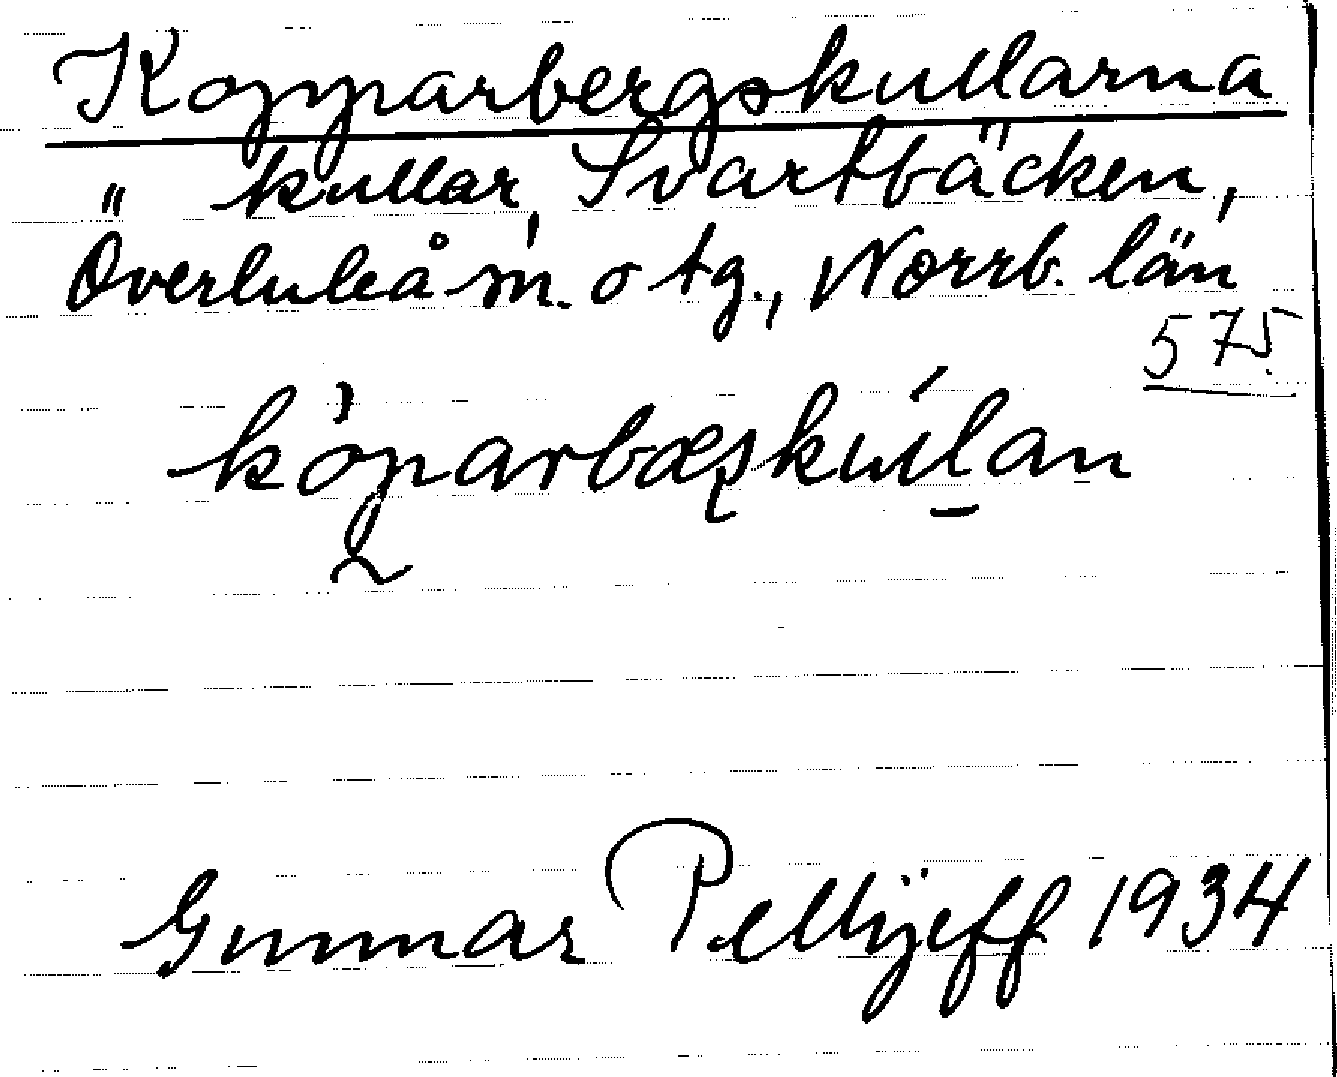 Kopparbergskullarna
" kullar, Svartbäcken,
Överluleå sn. o tg., Norrb. län
575.
Gunnar Pellijeff 1934